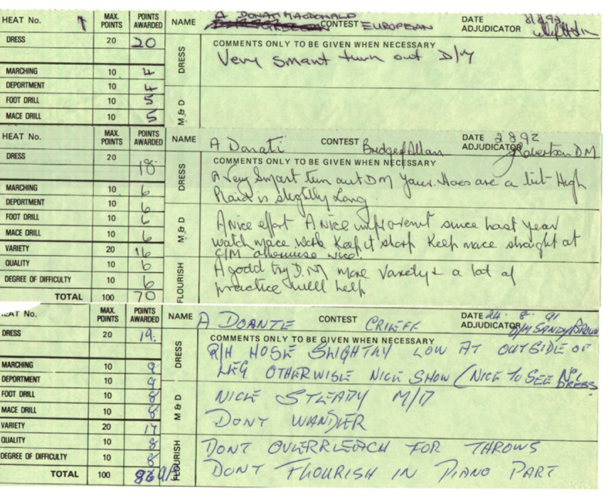 HEAT No. MAX. POINTS POINTS AWARDED NAME A DONAN MACDONALD CONTEST EUROPEAN DATE 8.8.92
ADJUDICATOR
DRESS 20 20 DRESS COMMENTS ONLY TO BE GIVEN WHEN NECESSARY
Very smart turn out D/M
MARCHING 10 4
DEPORTMENT 10 4
FOOT DRILL 10 5 M & D
MACE DRILL 10 5
HEAT No. MAX. POINTS POINTS AWARDED NAME A Donati CONTEST Bridge of Allan DATE 2 8 92
ADJUDICATOR Robertson DM
DRESS 20 18 DRESS COMMENTS ONLY TO BE GIVEN WHEN NECESSARY
A Very Smart turn out DM Your Hoes are a bit High
Plaid is slightly Long
MARCHING 10 6
DEPORTMENT 10 6
FOOT DRILL 10 6 M & D A Nice effort A Nice improvent since last year
MACE DRILL 10 6 watch mace work Keep it sharp Keep mace straight at
VARIETY 20 16 C/M otherwise nice
QUALITY 10 6 FLOURISH A good try D.M more Variety & a lot of
DEGREE OF DIFFICULTY 10 6 practice will help
TOTAL 100 70
HEAT No. MAX. POINTS POINTS AWARDED NAME A DOANTE CONTEST CRIEFF DATE 24. 8. 91
ADJUDICATOR D/M SANDY BROWN
DRESS 20 19. DRESS COMMENTS ONLY TO BE GIVEN WHEN NECESSARY
R/H HOSE SLIGHTLY LOW AT OUTSIDE OF
LEG OTHERWISE NICE SHOW (NICE TO SEE No1 DRESS
MARCHING 10 9
DEPORTMENT 10 9
FOOT DRILL 10 8 M & D NICE STEADY M/D
MACE DRILL 10 8 DONT WANDER
VARIETY 20 17
QUALITY 10 8 FLOURISH DONT OVERREACH FOR THROWS
DEGREE OF DIFFICULTY 10 8 DONT FLOURISH IN PIANO PART
TOTAL 100 86